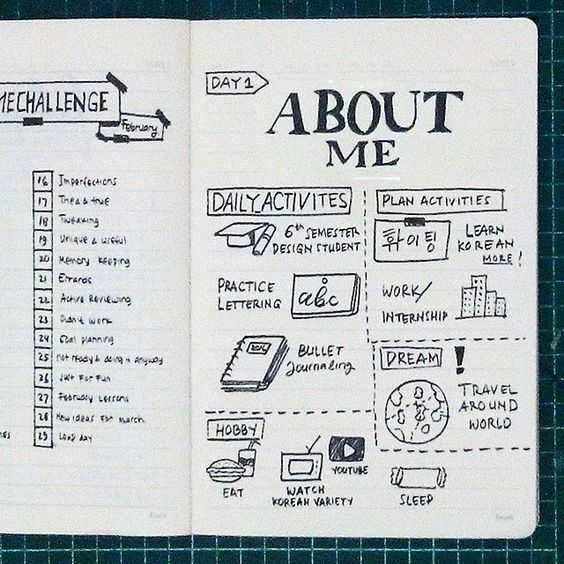 MECHALLENGE
February
16 Imperfections
17 Tried & true
18 Tweaking
19 Unique & useful
20 Memory Keeping
21 Errands
22 Active Reviewing
23 Didn't work
24 Goal planning
25 Not ready & doing it anyway
26 Just For Fun
27 February Lessons
28 New ideas for March
29 Leap day
DAY 1
ABOUT
ME
DAILY ACTIVITES
6th SEMESTER
DESIGN STUDENT
PRACTICE
LETTERING
abc
BULLET
Journaling
HOBBY
EAT
WATCH
KOREAN VARIETY
YOUTUBE
SLEEP
PLAN ACTIVITIES
LEARN
KOREAN
MORE!
WORK/
INTERNSHIP
DREAM
!
TRAVEL
AROUND
WORLD